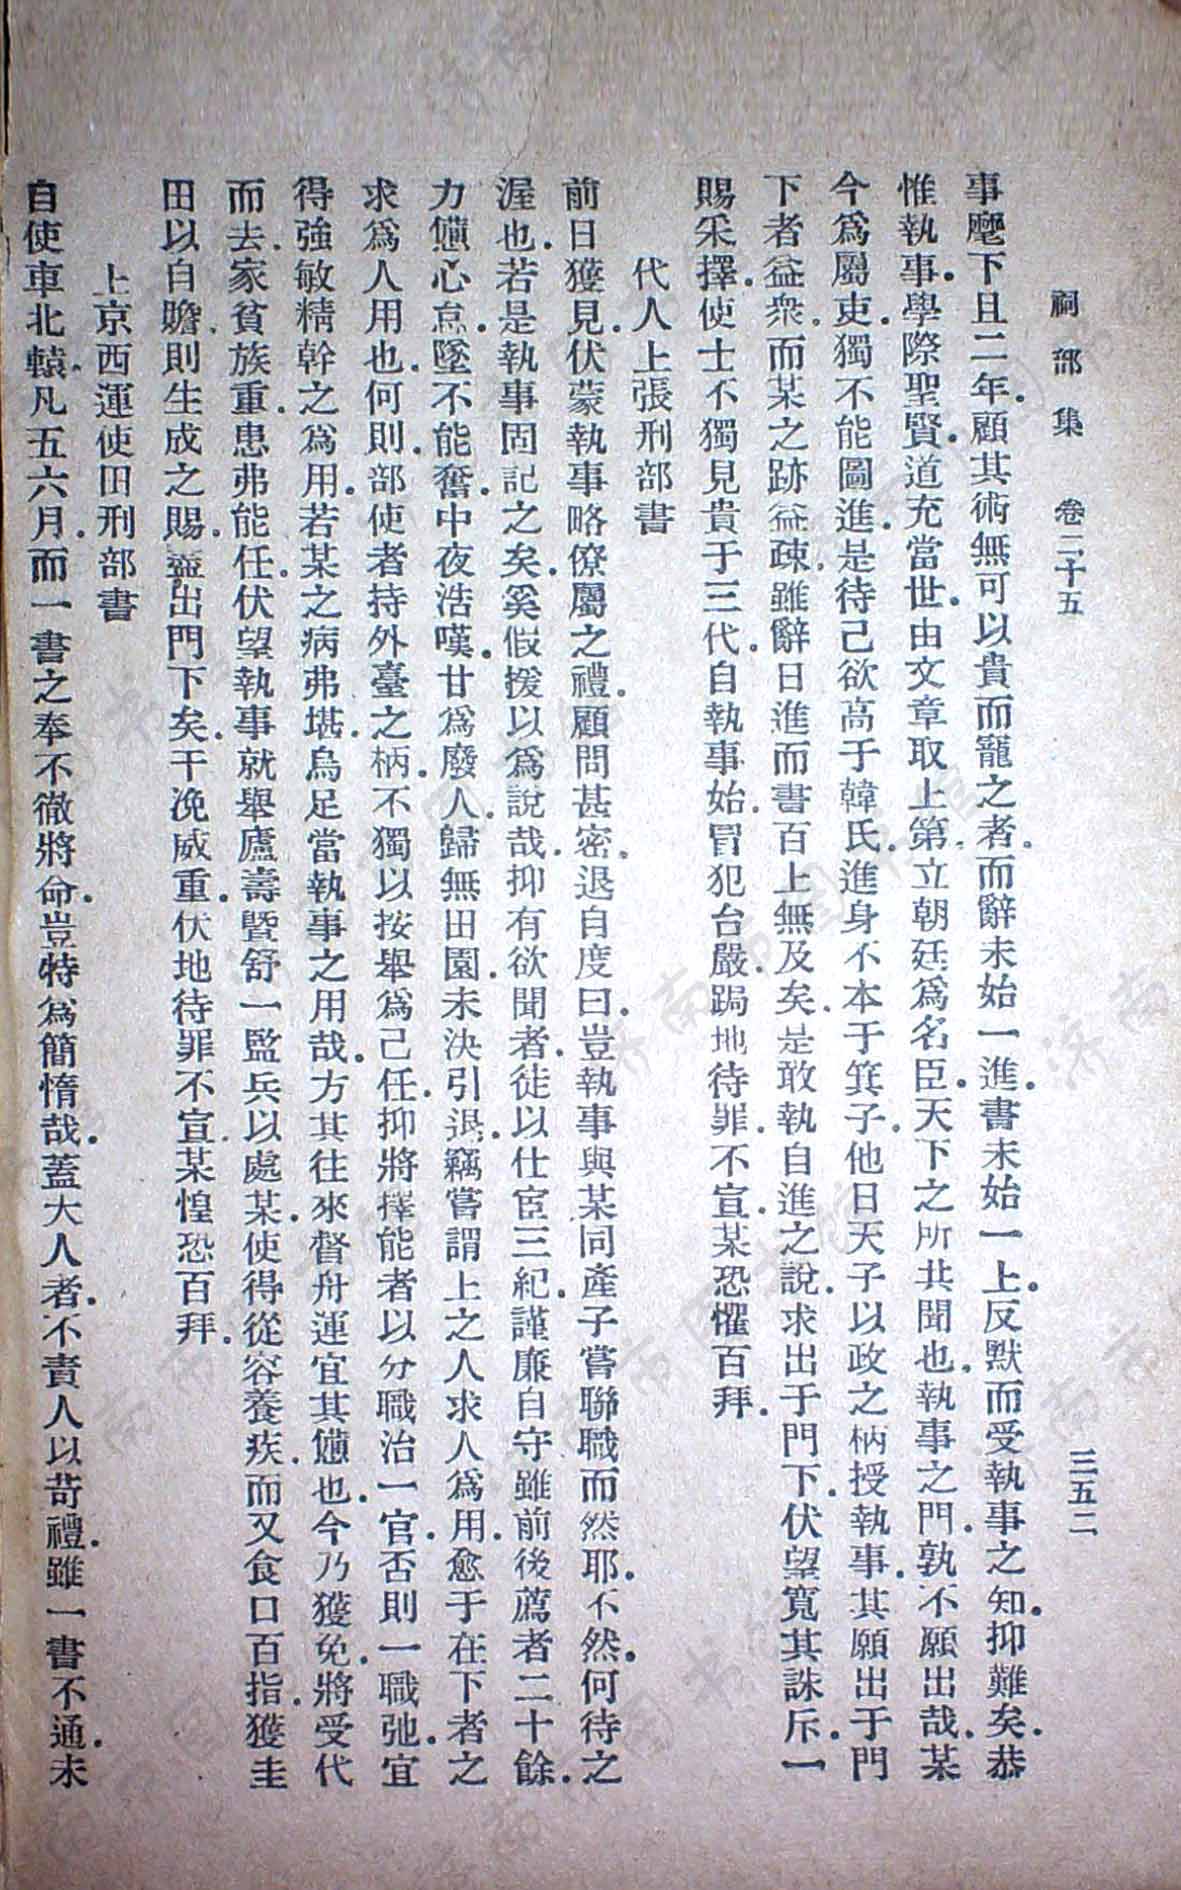 祠部集 卷二十五 三五二
事麾下且二年.顧其術無可以貴而寵之者.而辭未始一進.書未始一上.反默而受執事之知.抑難矣.恭
惟執事.學際聖賢.道充當世.由文章取上第立朝廷爲名臣.天下之所共聞也.執事之門.孰不願出哉.某
今爲屬吏.獨不能圖進.是待己欲高于韓氏.進身不本于箕子.他日天子以政之柄授執事.其願出于門
下者.益衆.而某之跡益疎.雖辭日進而書百上無及矣.是敢執自進之說.求出于門下.伏望寬其誅斥.一
賜采擇.使士不獨見貴于三代.自執事始.冒犯台嚴.跼地待罪.不宣.某恐懼百拜.
代人上張刑部書
前日獲見.伏蒙執事略僚屬之禮.顧問甚密.退自度曰.豈執事與某同產子嘗聯職而然耶.不然.何待之
渥也.若是執事固記之矣.奚假援以爲說哉.抑有欲聞者.徒以仕宦三紀.謹廉自守.雖前後薦者二十餘.
力憊心怠.墜不能奮.中夜浩嘆.甘爲廢人.歸無田園.未決引退.竊嘗謂上之人求人爲用.愈于在下者之
求爲人用也.何則.部使者持外臺之柄.不獨以按舉爲己任.抑將擇能者以分職治一官.否則一職弛.宜
得強敏精幹之爲用.若某之病弗堪.烏足當執事之用哉.方其往來督舟運宜其憊也.今乃獲免.將受代
而去.家貧族重.患弗能任.伏望執事就舉廬壽暨舒一監兵以處某.使得從容養疾.而又食口百指.獲圭
田以自贍.則生成之賜.益出門下矣.干浼威重.伏地待罪不宣.某惶恐百拜.
上京西運使田刑部書
自使車北轅.凡五六月.而一書之奉不徹將命.豈特爲簡惰哉.蓋大人者.不責人以苛禮.雖一書不通.未